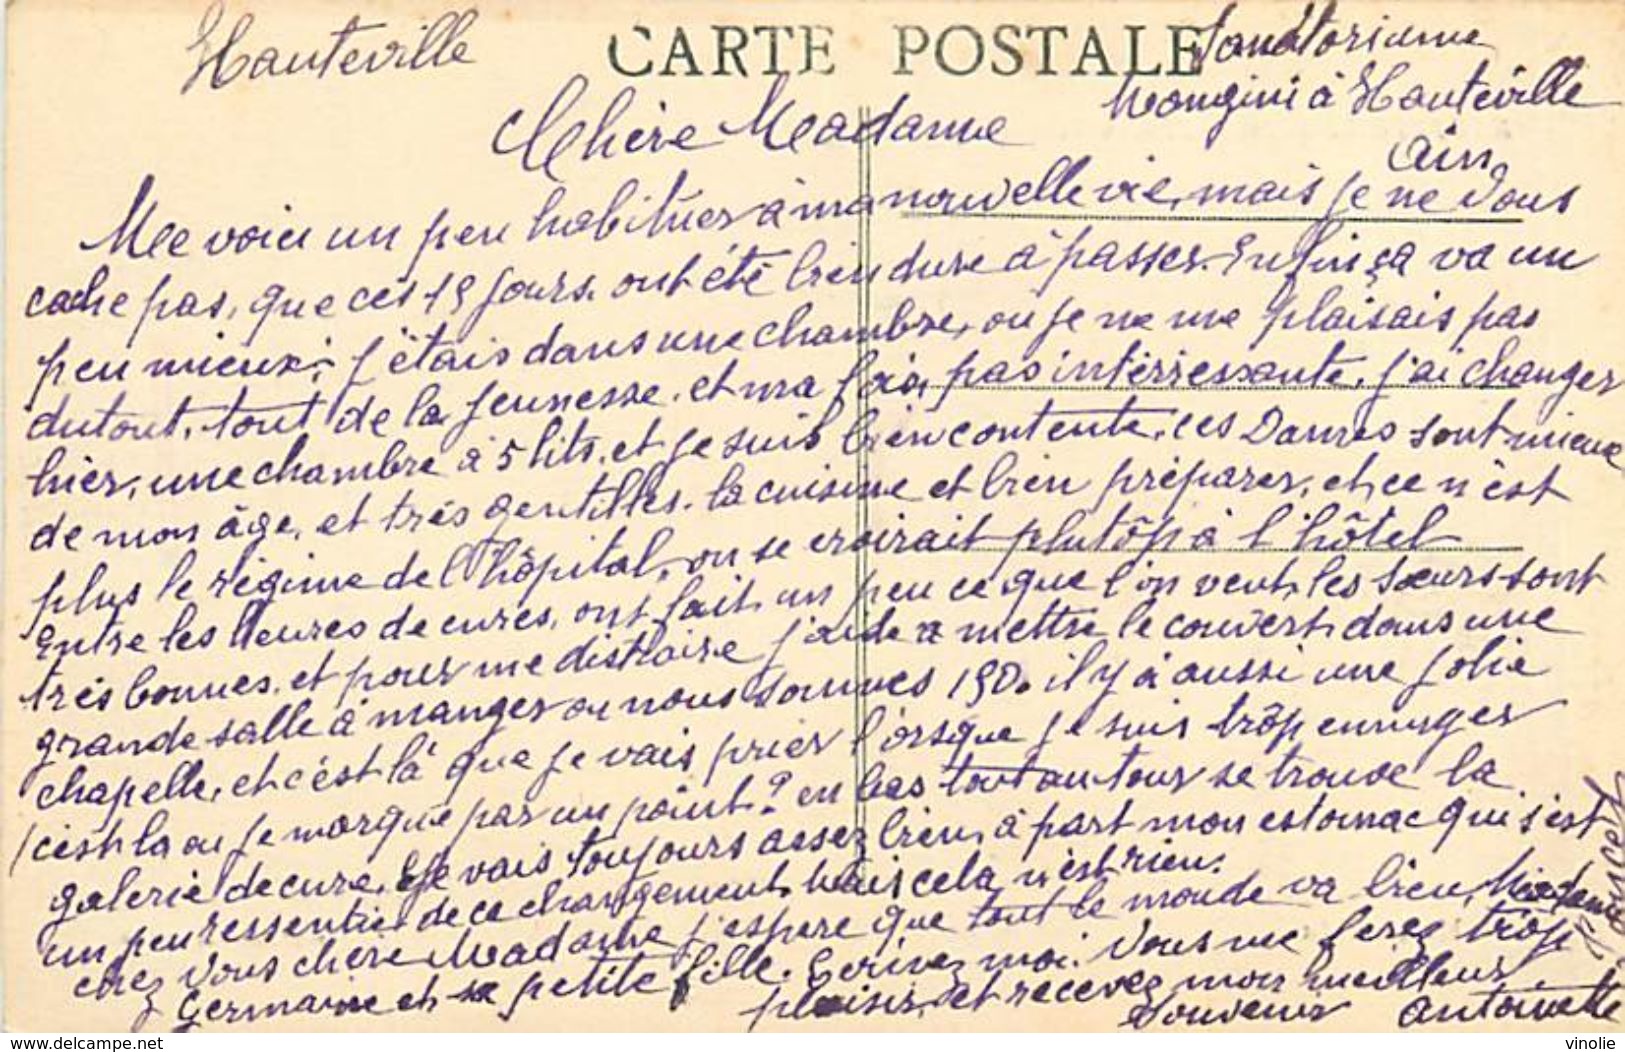 Hauteville
CARTE POSTALE
Sanatoriume
Mongini à Hauteville
Ain
Chère Madame
Me voici un peu habituer à ma nouvelle vie, mais je ne vous
cache pas, que ces 15 jours, ont été bien dure à passer. Enfin ça va un
peu mieux, j'étais dans une chambre, ou je ne me plaisais pas
dutout, tout de la jeunesse, et ma foi, pas intérressante, j'ai changer
hier, une chambre à 5 lits, et je suis bien contente, ces Dames sont mieux
de mon âge, et trés gentilles. la cuisine et bien préparer, et ce n'est
plus le régime de l'hôpital, on se croirait plutôp à l'hôtel
Entre les heures de cures, ont fait un peu ce que l'on veut, les sœurs sont
trés bonnes, et pour me distraire j'aide a mettre le couvert, dans une
grande salle à manger ou nous sommes 190. il y à aussi une jolie
chapelle, et c'est là que je vais prier l'orsque je suis trôp ennuyer
(c'est la ou je marque par un point? en bas tout autour se trouve la
galerie de cure. Je vais toujours assez bien, à part mon estomac qui s'est
un peu ressentie de ce changement, Mais cela n'est rien.
chez vous chère Madame j'espere que tout le monde va bien, Madame
Germaine et sa petite fille. Ecrivez moi. Vous me ferez trôp
plaisir, et recevez mon meilleur
Souvenir Antoinette
www.delcampe.net
vinolie